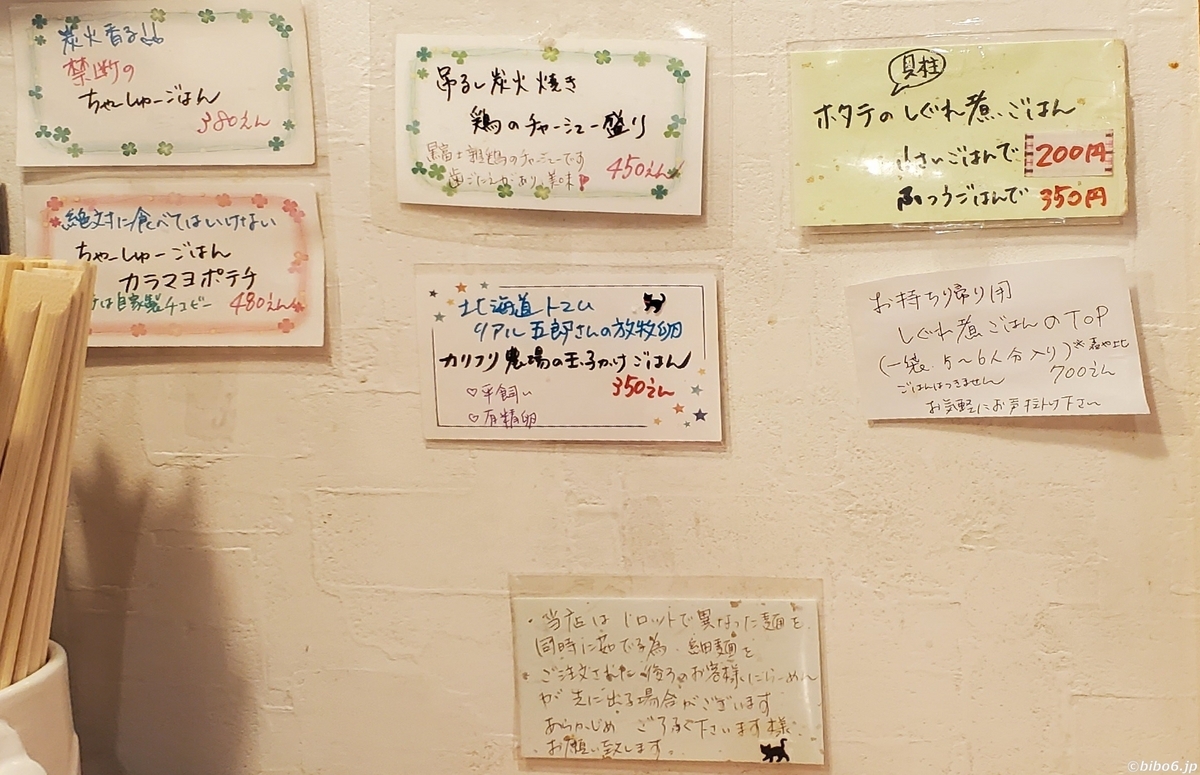 炭火香る!!
禁断の
ちゃーしゅーごはん
380えん
絶対に食べてはいけない
ちゃーしゅーごはん
カラマヨポテチ
は自家製チュビー 480えん
吊るし炭火焼き
鶏のチャーシュー盛り
鶏のチャーシューです
歯ごたえがあり、美味 450えん
北海道トマム
リアル五郎さんの放牧卵
カリフリ農場の玉子かけごはん
350えん
♡平飼い
♡有精卵
貝柱
ホタテのしぐれ煮ごはん
小さいごはんで 200円
ふつうごはんで 350円
お持ち帰り用
しぐれ煮ごはんのTOP
(一袋 5〜6人分入り)
ごはんはつきません 700えん
お気軽にお声掛け下さい
・当店は 1ロットで異なった麺を
同時に茹でる為、細麺を
ご注文された後ろのお客様にらーめん
が先に出る場合がございます
あらかじめ ご了承下さいます様
お願い致します。
©bibo6.jp